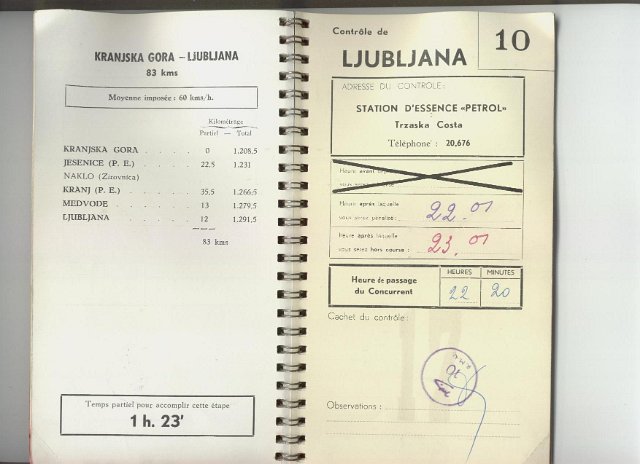 KRANJSKA GORA – LJUBLJANA
83 kms
Moyenne imposée : 60 kms/h.
Kilométrage
Partiel — Total
KRANJSKA GORA . . . . . 0 1.208,5
JESENICE (P. E.) . . . . . 22,5 1.231
NAKLO (Zirovnica)
KRANJ (P. E.) . . . . . 35,5 1.266,5
MEDVODE . . . . . 13 1.279,5
LJUBLJANA . . . . . 12 1.291,5
83 kms
Temps partiel pour accomplir cette étape
1 h. 23'
Contrôle de
LJUBLJANA
10
ADRESSE DU CONTROLE :
STATION D'ESSENCE «PETROL»
Trzaska Costa
Téléphone : 20,676
Heure avant
vous serez pénalisé :
Heure après laquelle
vous serez pénalisé : 22.01
Heure après laquelle
vous serez hors course : 23.01
Heure de passage
du Concurrent
HEURES MINUTES
22 20
Cachet du contrôle :
Observations :